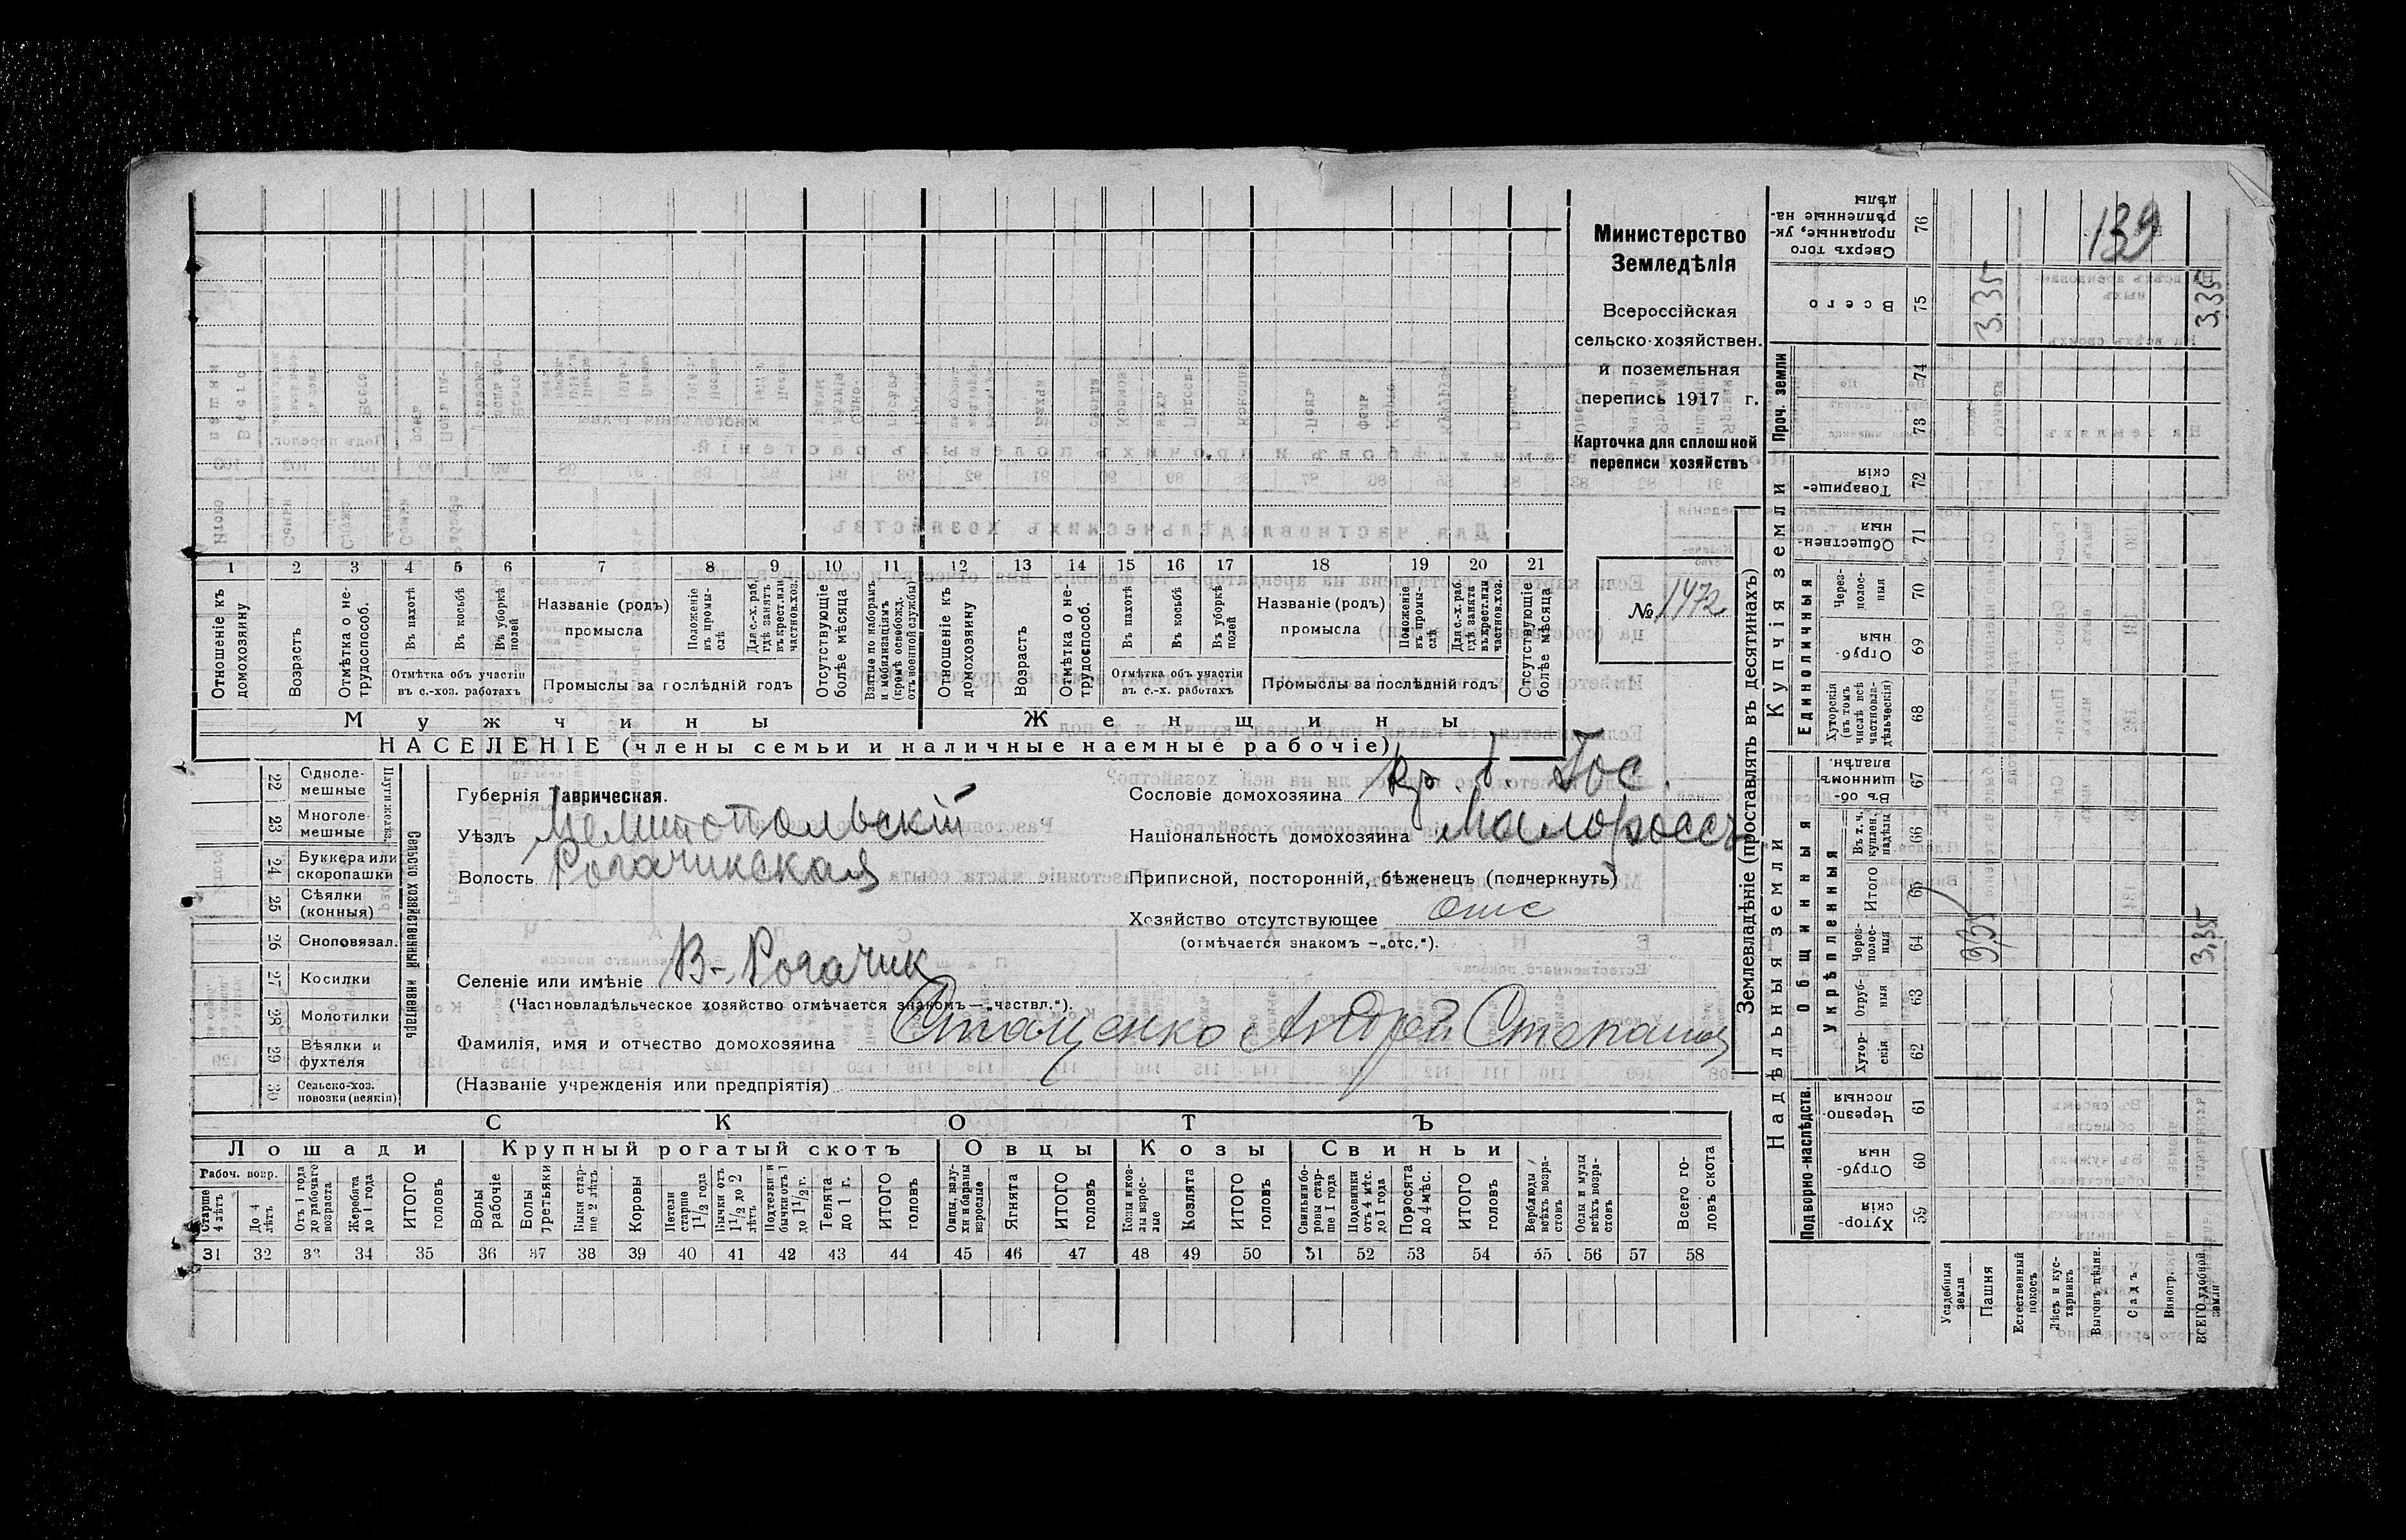 Министерство
Земледѣлія
Всероссійская
сельско-хозяйствен.
и поземельная
перепись 1917 г.
Карточка для сплошной
переписи хозяйствъ
№ 1472
139
1 2 3 4 5 6 7 8 9 10 11 12 13 14 15 16 17 18 19 20 21
Отношеніе къ домохозяину
Возрастъ
Отмѣтка о нетрудоспособ.
Въ пахотѣ
Въ косьбѣ
Въ уборкѣ полей
Отмѣтка объ участіи
въ с.-хоз. работахъ
Названіе (родъ)
промысла
Положеніе въ промыслѣ
Для с.-х. раб. гдѣ занятъ въ крест. или частнов. хоз.
Промыслы за послѣдній годъ
Отсутствующіе болѣе мѣсяца
Взятые по наборамъ и мобилизаціямъ (кромѣ освобожд. отъ военной службы)
Отношеніе къ домохозяину
Возрастъ
Отмѣтка о нетрудоспособ.
Въ пахотѣ
Въ косьбѣ
Въ уборкѣ полей
Отмѣтка объ участіи
въ с.-х. работахъ
Названіе (родъ)
промысла
Положеніе въ промыслѣ
Для с.-х. раб. гдѣ занята въ крест. или частнов. хоз.
Промыслы за послѣдній годъ
Отсутствующіе болѣе мѣсяца
Мужчины Женщины
НАСЕЛЕНІЕ (члены семьи и наличные наемные рабочіе)
Сельско-хозяйственный инвентарь
22 Одноле-
мешные
23 Многоле-
мешные
24 Буккера или
скоропашки
25 Сѣялки
(конныя)
26 Сноповязал.
27 Косилки
28 Молотилки
29 Вѣялки и
фухтеля
30 Сельско-хоз.
повозки (всякія)
Губернія Таврическая.
Уѣздъ Мелитопольскій
Волость Рогачикская
Селеніе или имѣніе В-Рогачик
(Частновладѣльческое хозяйство отмѣчается знакомъ —„частвл.“).
Фамилія, имя и отчество домохозяина Стаценко Андрей Степанов
(Названіе учрежденія или предпріятія)
Сословіе домохозяина кр. б. Гос.
Національность домохозяина Малороссъ
Приписной, посторонній, бѣженецъ (подчеркнуть)
Хозяйство отсутствующее отс
(отмѣчается знакомъ —„отс.“).
СКОТЪ
Лошади Крупный рогатый скотъ Овцы Козы Свиньи
Рабоч. возр.
Старше 4 лѣтъ
До 4 лѣтъ
Отъ 1 года до рабочаго возраста
Жеребята до 1 года
ИТОГО головъ
Волы рабочіе
Волы третьяки
Быки старше 2 лѣтъ
Коровы
Нетели старше 1 1/2 года
Бычки отъ 1 1/2 до 2 лѣтъ
Подтелки и бычки отъ 1 до 1 1/2 г.
Телята до 1 г.
ИТОГО головъ
Овцы, валухи и бараны взрослые
Ягнята
ИТОГО головъ
Козы и козлы взрослые
Козлята
ИТОГО головъ
Свиньи боровы старше 1 года
Подсвинки отъ 4 мѣс. до 1 года
Поросята до 4 мѣс.
ИТОГО головъ
Верблюды всѣхъ возрастовъ
Ослы и мулы всѣхъ возрастовъ
Всего головъ скота
31 32 33 34 35 36 37 38 39 40 41 42 43 44 45 46 47 48 49 50 51 52 53 54 55 56 57 58
Землевладѣніе (проставлять въ десятинахъ)
Надѣльныя земли
Купчія земли
Проч. земли
Подворно-наслѣдств.
Общинныя
Укрѣпленныя
Единоличныя
Хуторскія 59
Отрубныя 60
Черезполосныя 61
Хуторскія 62
Отрубныя 63
Черезполосныя 64
Итого 65
Въ т. ч. куплен. надѣлы 66
Въ общинномъ владѣн. 67
Хуторскія (въ томъ числѣ всѣ частновладѣльческія) 68
Отрубныя 69
Черезполосныя 70
Общественныя 71
Товарищескія 72
73
74
Всего 75
Сверхъ того проданные, укрѣпленные надѣлы 76
Усадебныя земля
Пашня 3,35 3.35
Естественный покосъ
Лѣсъ и кустарникъ
Выгонъ цѣлин.
Садъ
Виногр.
ВСЕГО удобной земли 3,35 3,35